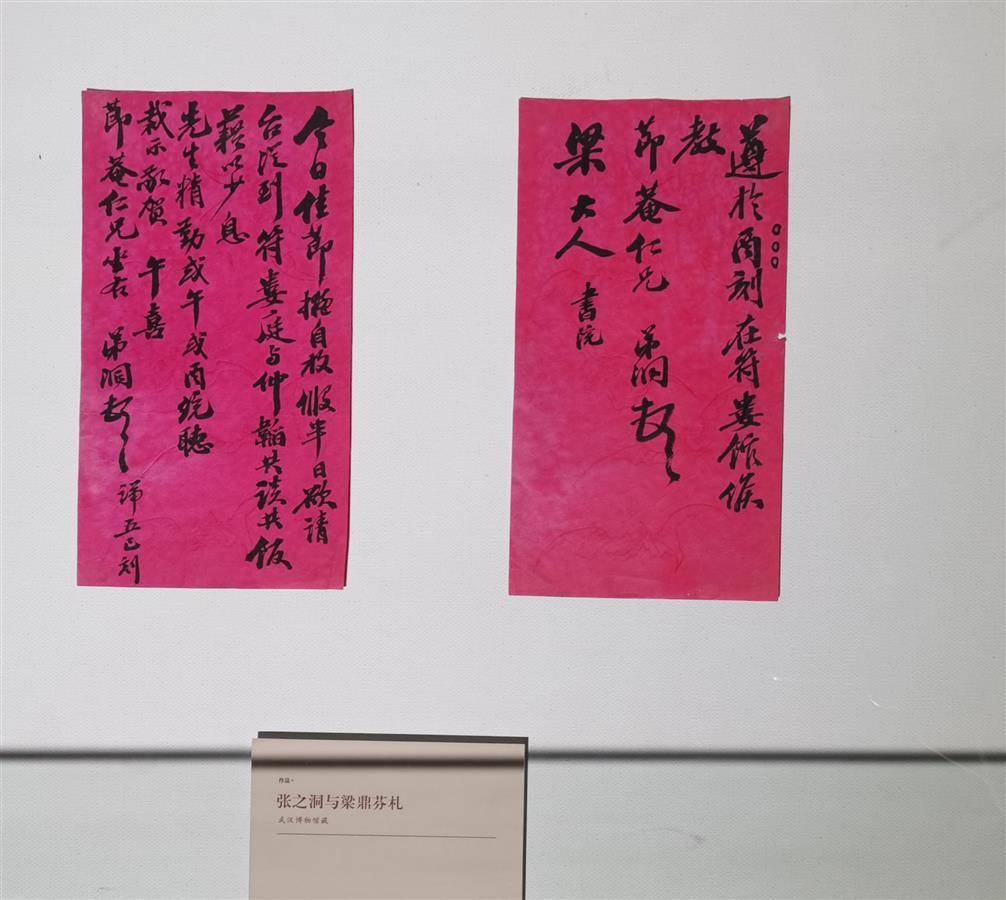 遵於酉刻在符婁館候
教
節菴仁兄 弟洞
梁大人 書院
今日佳節擬自放假半日欲請
台從到符婁庭与仲韜共談共飯
藉以少息
先生精勤或午或酉統聽
裁示敬賀 午喜
節菴仁兄坐右 弟洞 端五巳刻
作品·
张之洞与梁鼎芬札
武汉博物馆藏